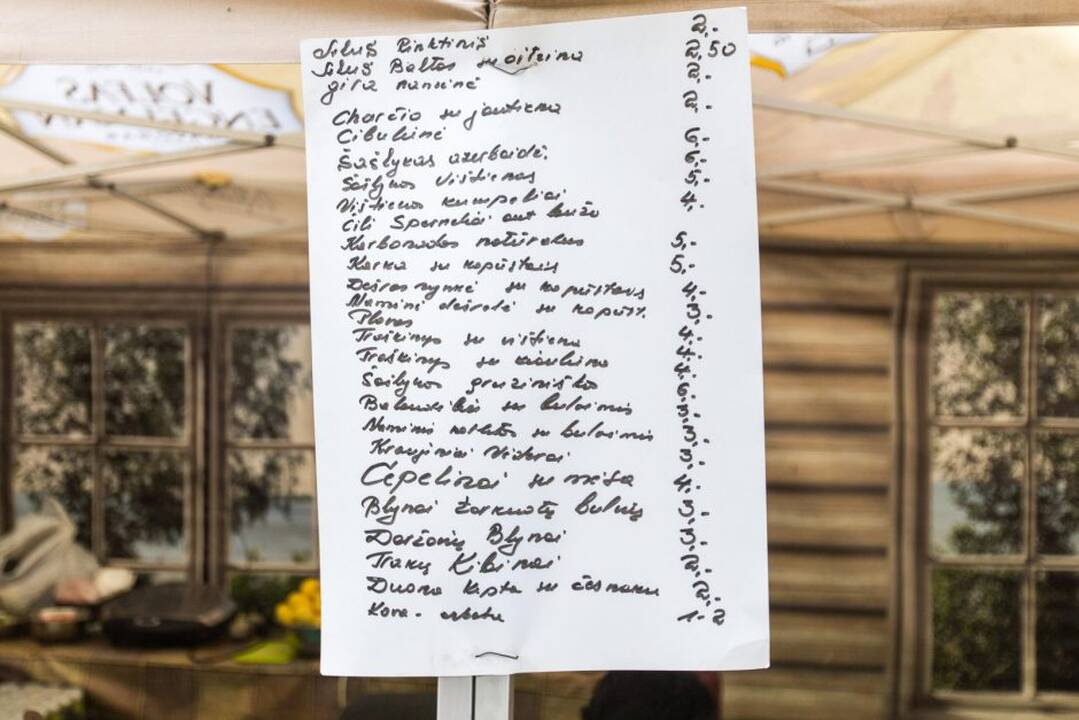 Alus Rinktinis 2.-
Alus Baltas su citrina 2,50
gira naminė 2.-
Charčio su jautiena 2.-
Cibulinė
Šašlykas azerbaidž. 6.-
Šašlykas Vištienos 6.-
Vištienos kumpeliai 5.-
Čili Sparneliai ant laužo 4.-
Karbonadas natūralus 5,-
Karka su kopūstais 5.-
Dešros su kopūstais 4.-
Naminė dešrelė su kopūst. 3.-
Plovas 4.-
Troškinys su vištiena 4.-
Troškinys su kiauliena 4.-
Šašlykas gruziniškas 6.-
Balandėliai su bulvėmis 3.-
Naminis kotletas su bulvėmis 3.-
Kraujiniai Vėdarai 3.-
Cepelinai su mėsa 4.-
Blynai Žarkuotų bulvių 3.-
Daržovių Blynai 3.-
Trakų Kibinai 2.-
Duona kepta su česnaku 2.-
Kava - arbata 1.- 2
VOLFAS
ENGELMAN